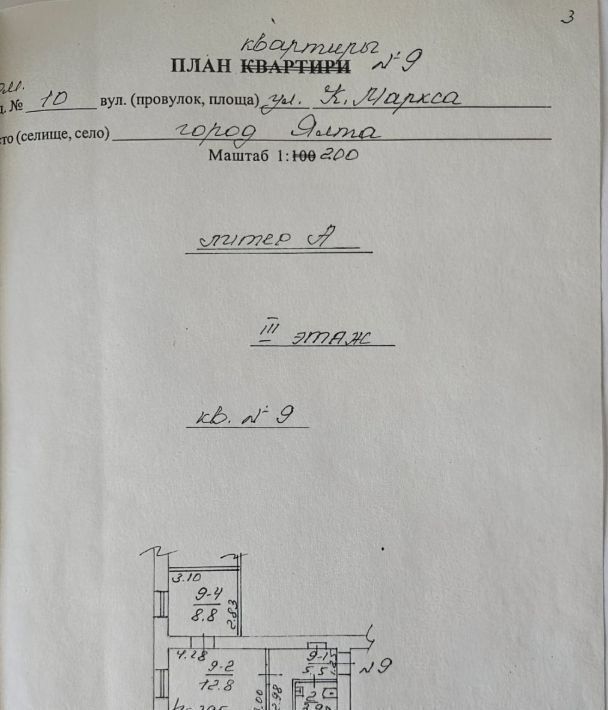 3
квартиры
ПЛАН КВАРТИРИ №9
№ 10 вул. (провулок, площа) ул. К. Маркса
(селище, село) город Ялта
Маштаб 1:100 200
литер А
III этаж
кв. №9
3.10
9-4
8.8
2.83
4.28
9-2
12.8
9-1
5.5
1.25
№9
2.98
2